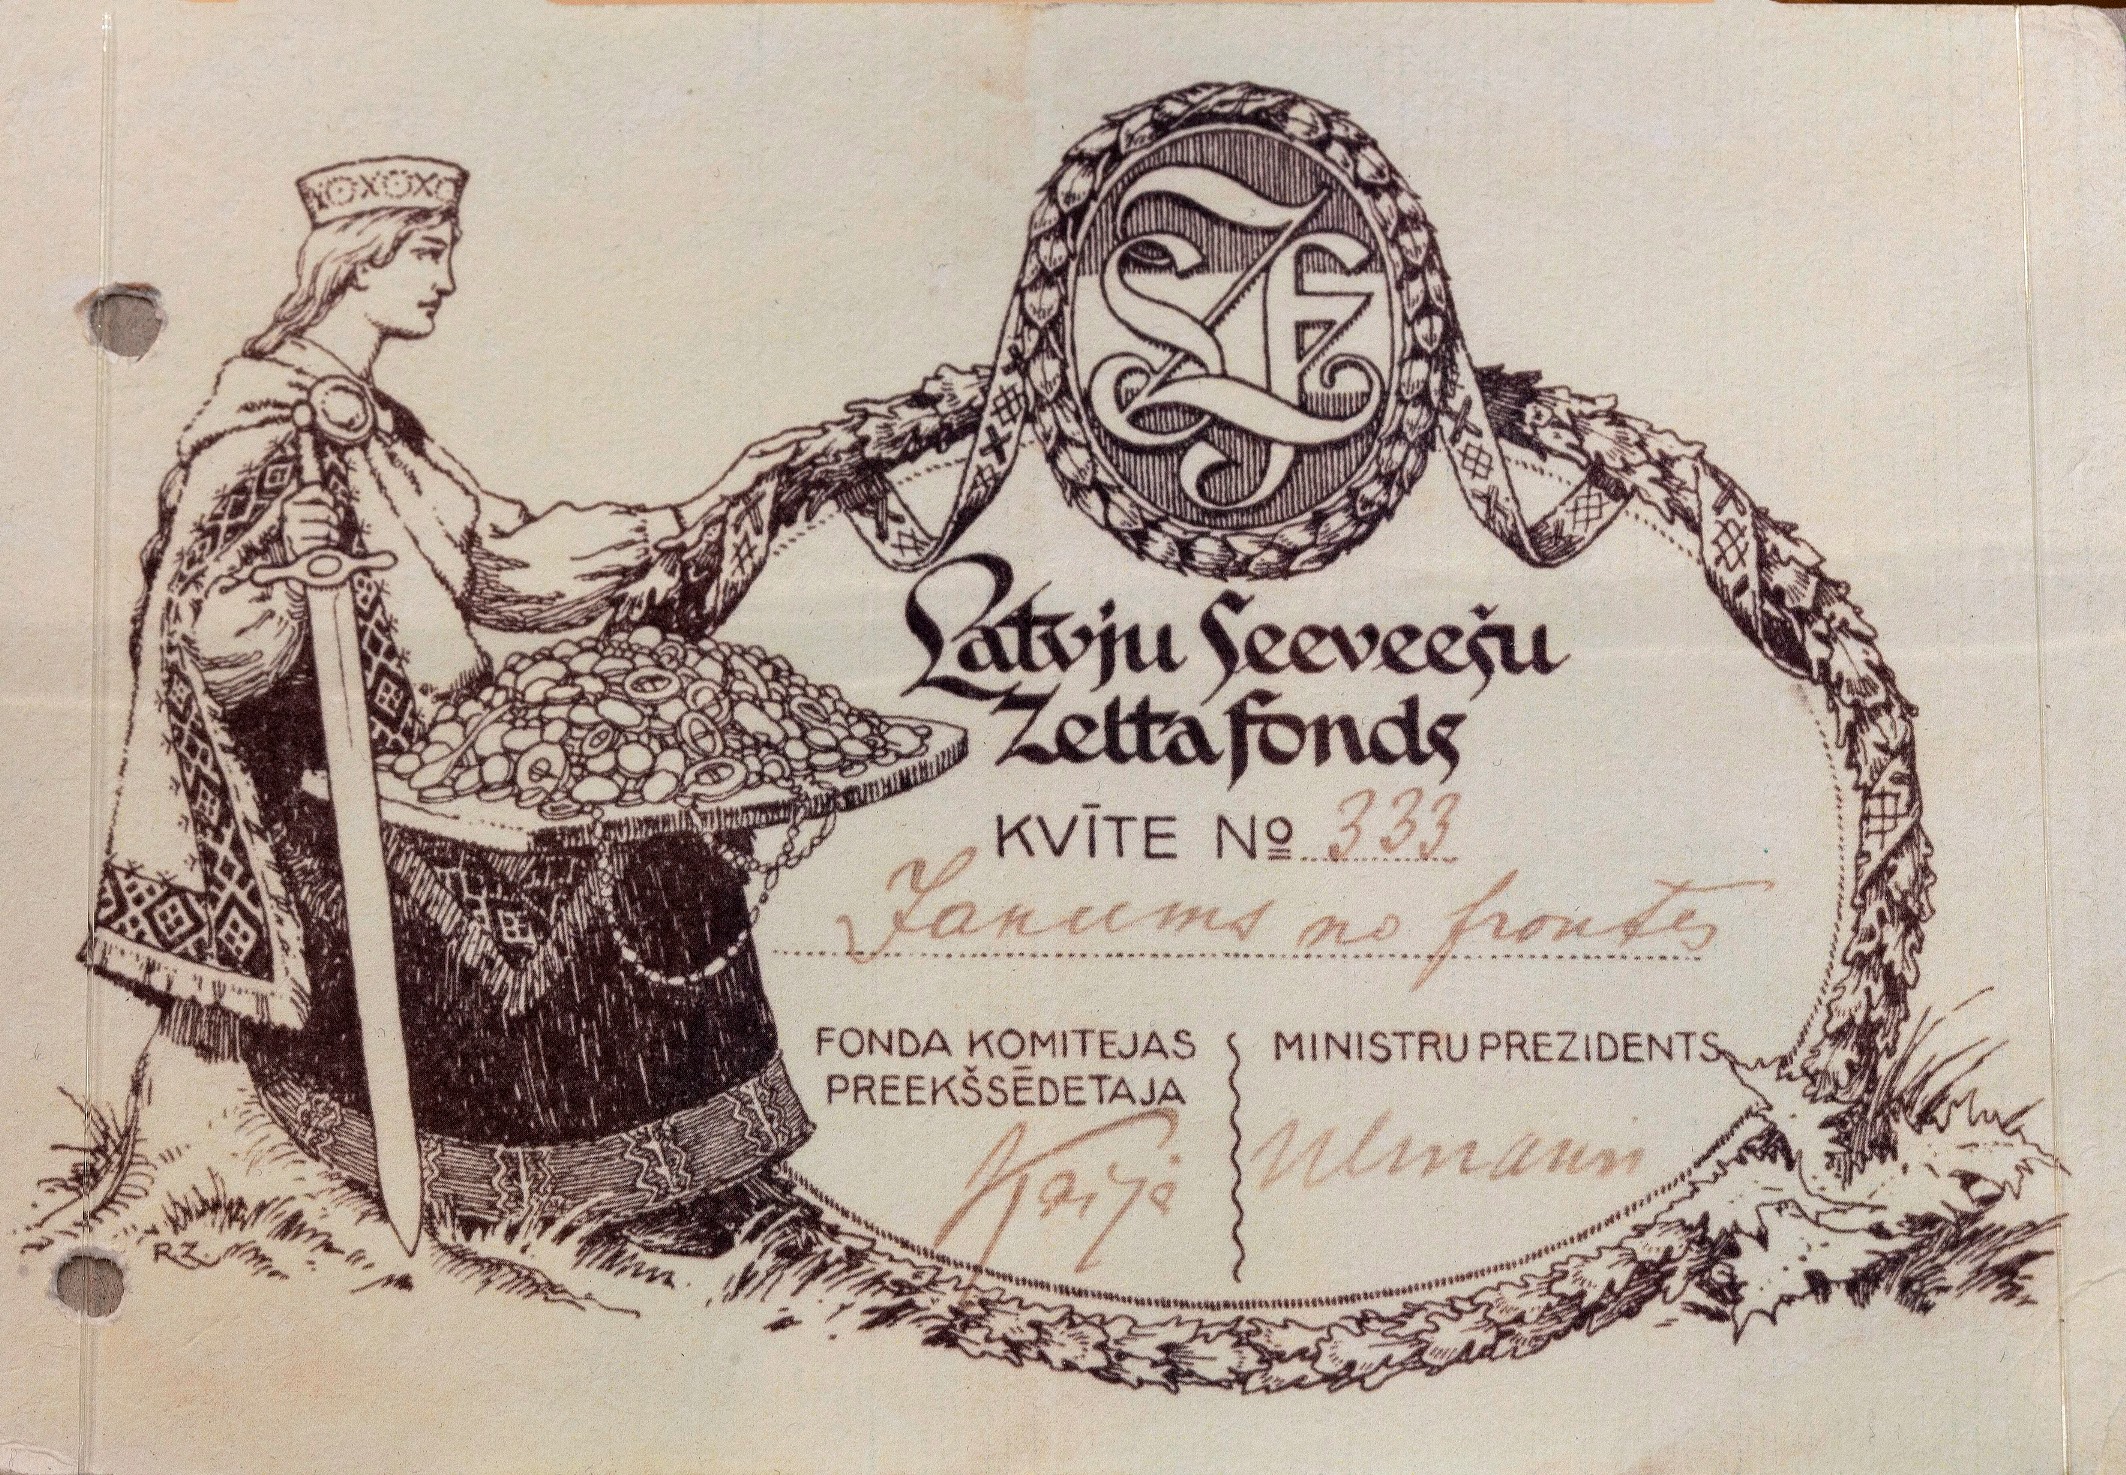 SZF
Latvju Seeveešu
Zelta fonds
KVĪTE No 333
Jansums no frontes
FONDA KOMITEJAS
PREEKŠSĒDETAJA
MINISTRU PREZIDENTS
Kaija
Ulmanis
R.Z.